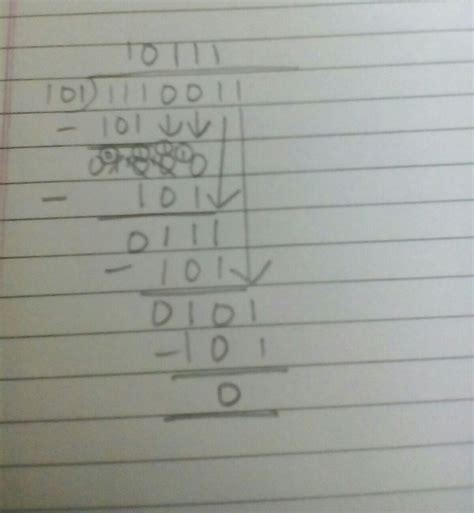 10111
101)1110011
- 101 ↓↓
- 101
0111
- 101
0101
-101
0